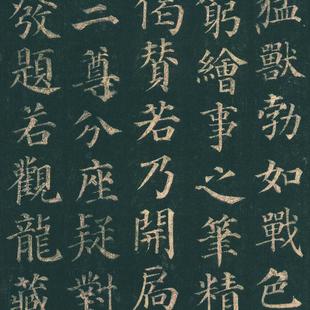 猛獸勃如戰色
窮繪事之筆精
偈贊若乃開扃
二尊分座疑對
發題若觀龍藏